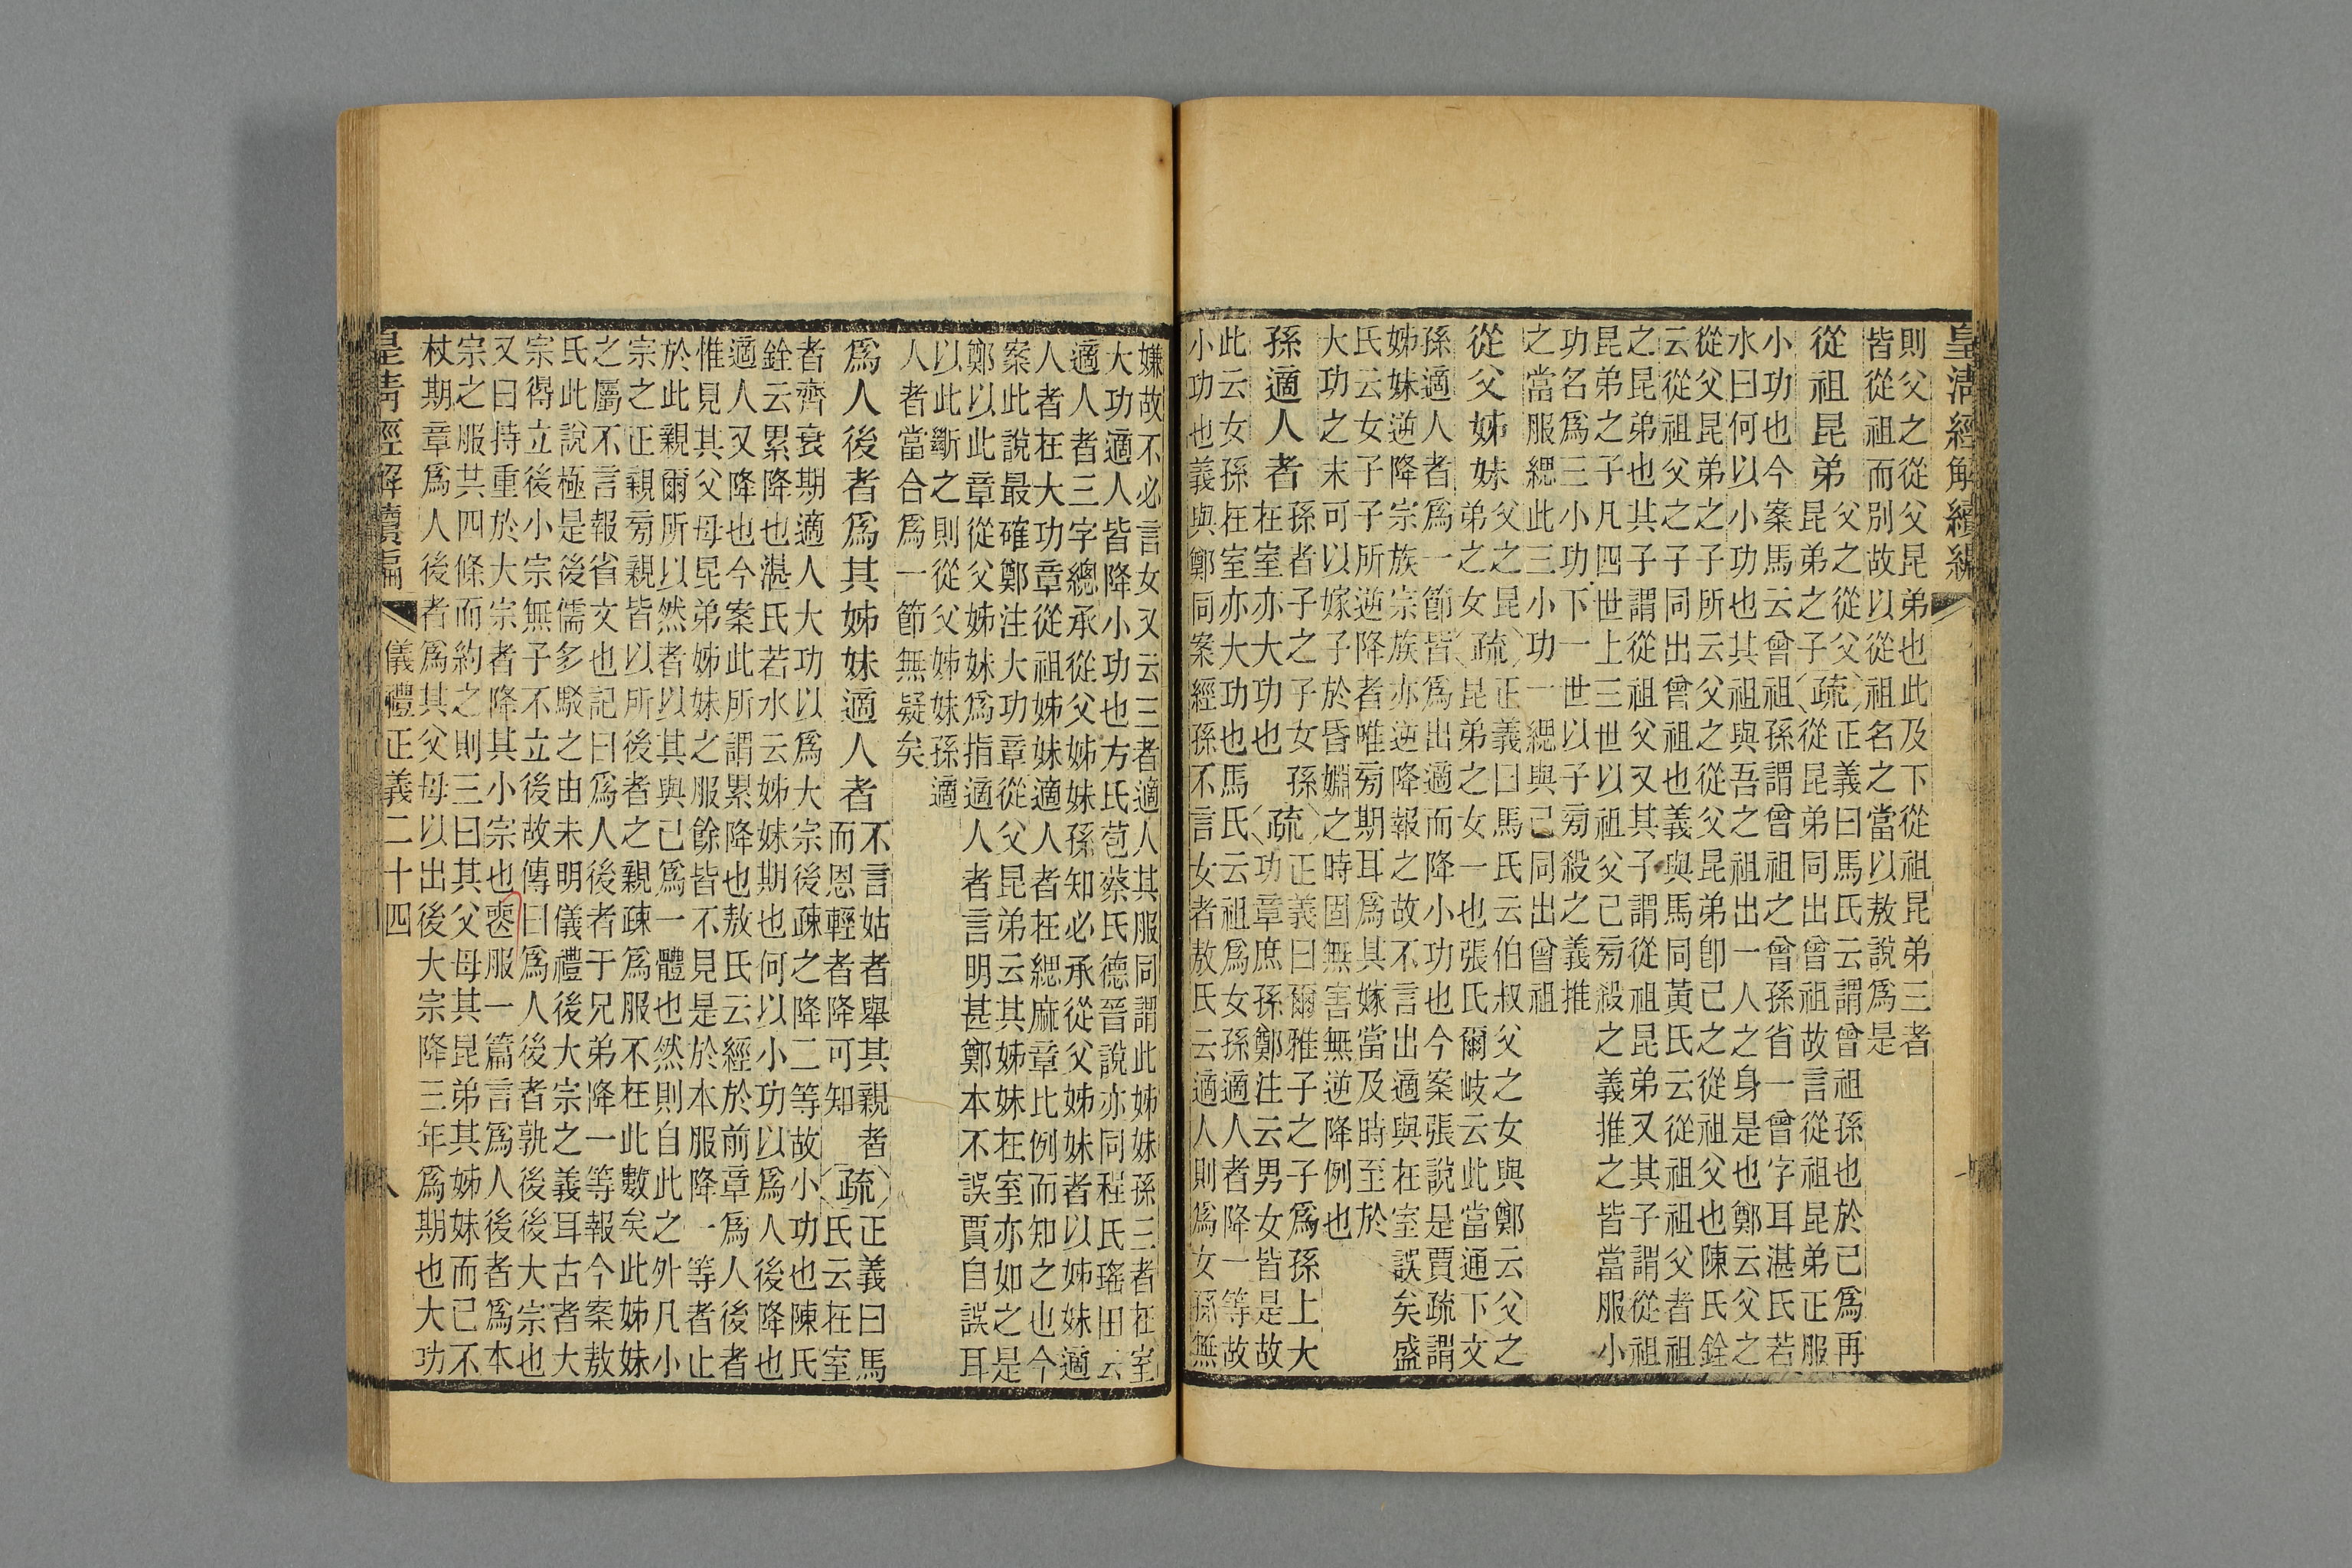 皇淸經解續編
則父之從父昆弟也此及下從祖昆弟三者
皆從祖而別故以從祖名之當以敖說爲是
從祖昆弟
父之從父
昆弟之子
疏
正義曰馬氏云謂曾祖孫也於已爲再
從昆弟同出曾祖故言從祖昆弟正服
小功也今案馬云曾祖孫謂曾祖之曾孫省一曾字耳湛氏若
水曰何以小功也其祖與吾之祖出一人之身是也鄭云父之
從父昆弟之子所云父之從父昆弟卽己之從祖父也陳氏銓
云從祖父之子同出曾祖也義與馬同黃氏云從祖祖父者祖
之昆弟也其子謂從祖父又其子謂從祖昆弟又其子謂從祖
昆弟之子凡四世上三世以祖父已旁殺之義推之皆當服小
功名爲三小功下一世以子旁殺之義推
之當服緦此三小功一緦與己同出曾祖
從父姊妹
父之昆
弟之女
疏
正義曰馬氏云伯叔父之女與鄭云父之
昆弟之女一也張氏爾岐云此當通下文
孫適人者爲一節皆爲出適而降小功也今案張說是賈疏謂
姊妹逆降宗族宗族亦逆降報之故不言出適與在室誤矣盛
氏云女子子所逆降者唯旁期耳爲其嫁當及時至於
大功之末可以嫁子於昏嫺之時固無害無逆降例也
孫適人者
孫者子之子女孫
在室亦大功也
疏
正義曰爾雅子之子爲孫上大
功章庶孫鄭注云男女皆是故
此云女孫在室亦大功也馬氏云祖爲女孫適人者降一等故
小功也義與鄭同案經孫不言女者敖氏云適人則爲女孫無
嫌故不必言女又云三者適人其服同謂此姊妹孫三者在室
大功適人皆降小功也方氏苞蔡氏德晉說亦同程氏瑤田云
適人者三字總承從父姊妹孫知必承從父姊妹者以姊妹適
人者在大功章從祖姊妹適人者在緦麻章比例而知之也今
案此說最確鄭注大功章從父昆弟云其姊妹在室亦如之是
鄭以此章從父姊妹爲指適人者言明甚鄭本不誤賈自誤耳
以此斷之則從父姊妹孫適
人者當合爲一節無疑矣
爲人後者爲其姊妹適人者
不言姑者舉其親者
而恩輕者降可知
疏
正義曰馬
氏云在室
者齊衰期適人大功以爲大宗後疎之降二等故小功也陳氏
銓云累降也湛氏若水云姊妹期也何以小功以爲人後降也
適人又降也今案此所謂累降也敖氏云經於前章爲人後者
惟見其父母昆弟姊妹之服餘皆不見是於本服降一等者止
於此親爾所以然者以其與己爲一體也然則自此之外凡小
宗之正親旁親皆以所後者之親疎爲服不在此數矣此姊妹
之屬不言報省文也記曰爲人後者于兄弟降一等報今案敖
氏此說極是後儒多駁之由未明儀禮後大宗之義耳古者大
宗得立後小宗無子不立後故傳曰爲人後者孰後後大宗也
又曰持重於大宗者降其小宗也喪服一篇言爲人後者爲本
宗之服共四條而約之則三曰其父母其昆弟其姊妹而已不
杖期章爲人後者爲其父母以出後大宗降三年爲期也大功
皇清經解續編
儀禮正義二十四
八